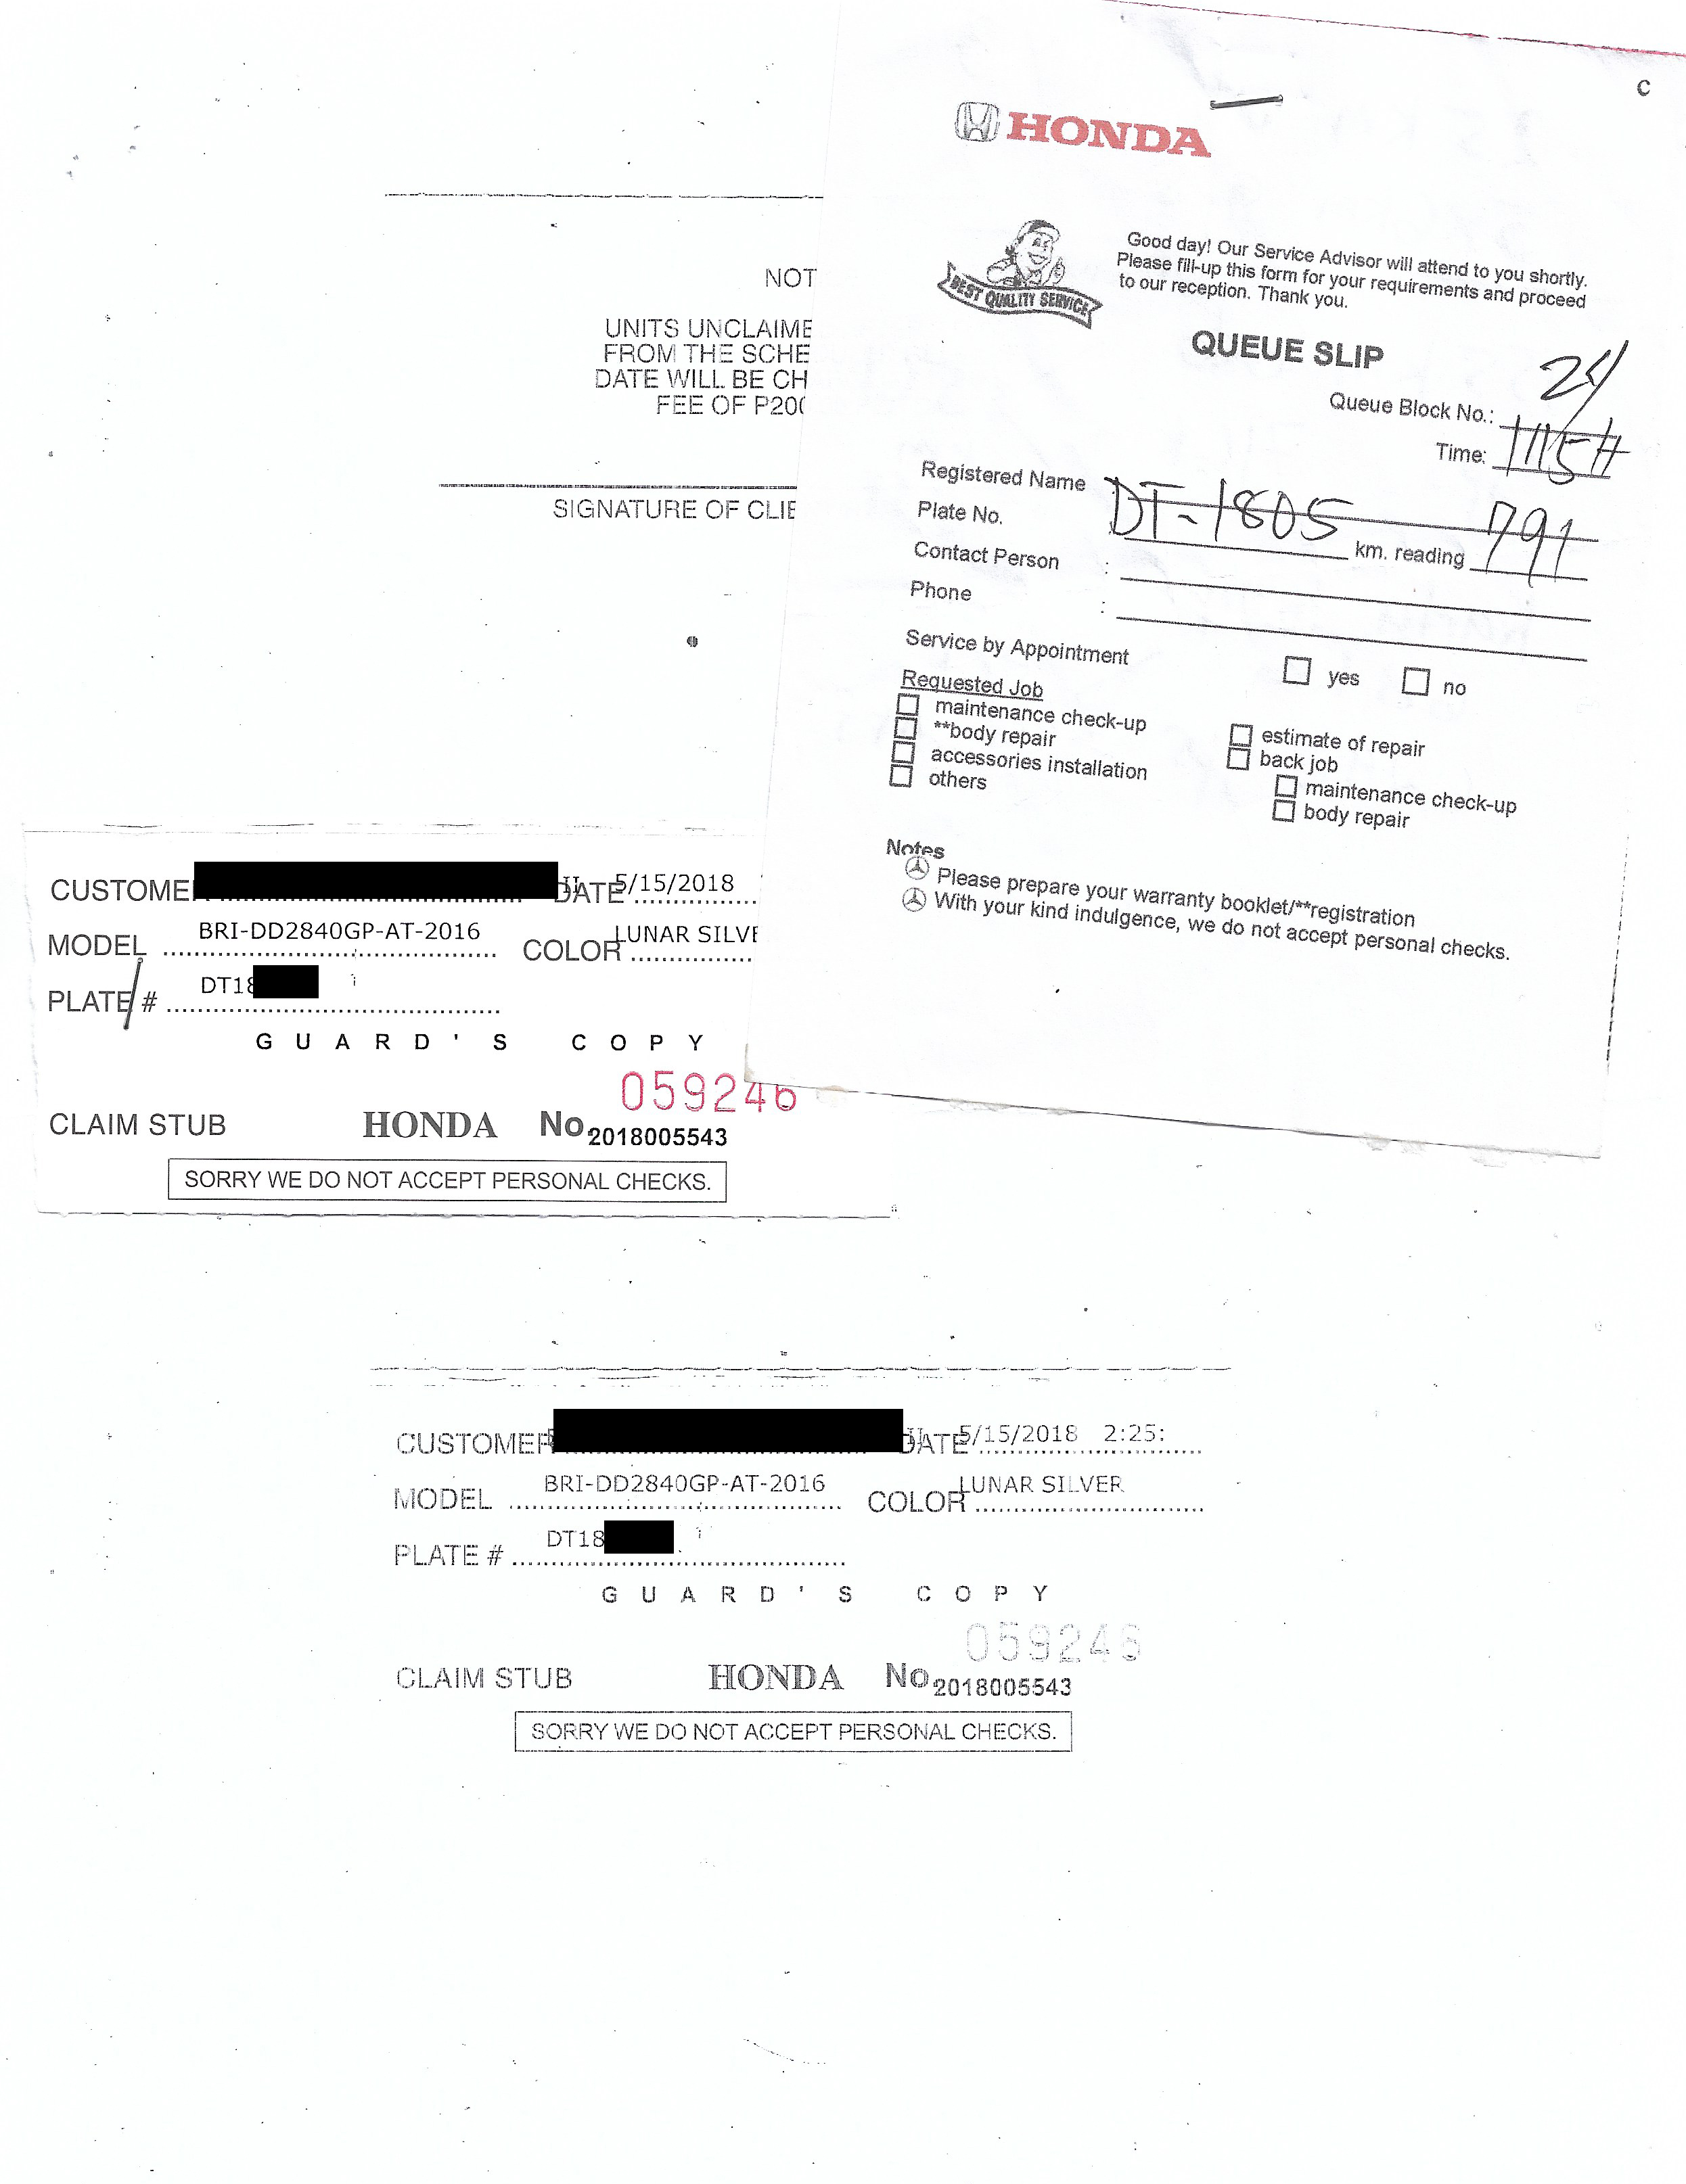 C
HONDA
BEST QUALITY SERVICE
Good day! Our Service Advisor will attend to you shortly.
Please fill-up this form for your requirements and proceed
to our reception. Thank you.
QUEUE SLIP
Queue Block No.: 24
Time: 1115H
Registered Name
Plate No. DT-1805 km. reading 791
Contact Person :
Phone :
Service by Appointment yes no
Requested Job
maintenance check-up
**body repair
accessories installation
others
estimate of repair
back job
maintenance check-up
body repair
Notes
Please prepare your warranty booklet/**registration
With your kind indulgence, we do not accept personal checks.
NOT
UNITS UNCLAIME
FROM THE SCHE
DATE WILL BE CH
FEE OF P200
SIGNATURE OF CLIE
CUSTOME DATE 5/15/2018
MODEL BRI-DD2840GP-AT-2016 COLOR LUNAR SILVE
PLATE # DT18
GUARD'S COPY
059246
CLAIM STUB HONDA No. 2018005543
SORRY WE DO NOT ACCEPT PERSONAL CHECKS.
CUSTOMER DATE 5/15/2018 2:25:
MODEL BRI-DD2840GP-AT-2016 COLOR LUNAR SILVER
PLATE # DT18
GUARD'S COPY
059246
CLAIM STUB HONDA No. 2018005543
SORRY WE DO NOT ACCEPT PERSONAL CHECKS.